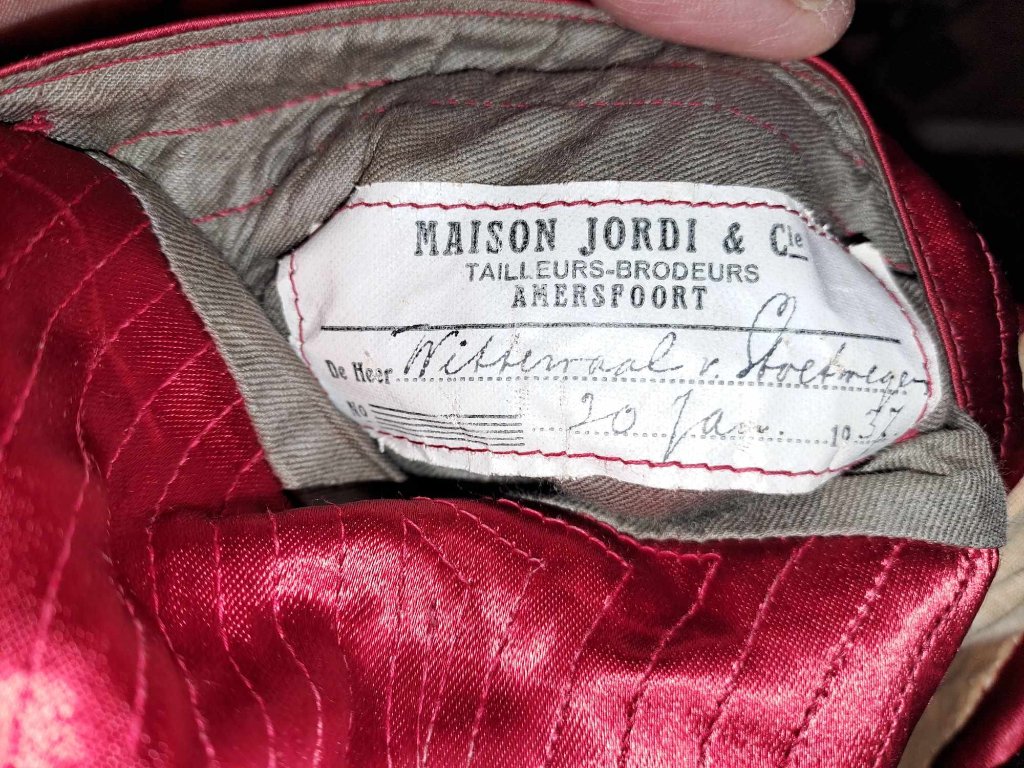 MAISON JORDI & Cie
TAILLEURS-BRODEURS
AMERSFOORT
De Heer Wittewaal v. Stoetwegen
No
20 Jan. 1937